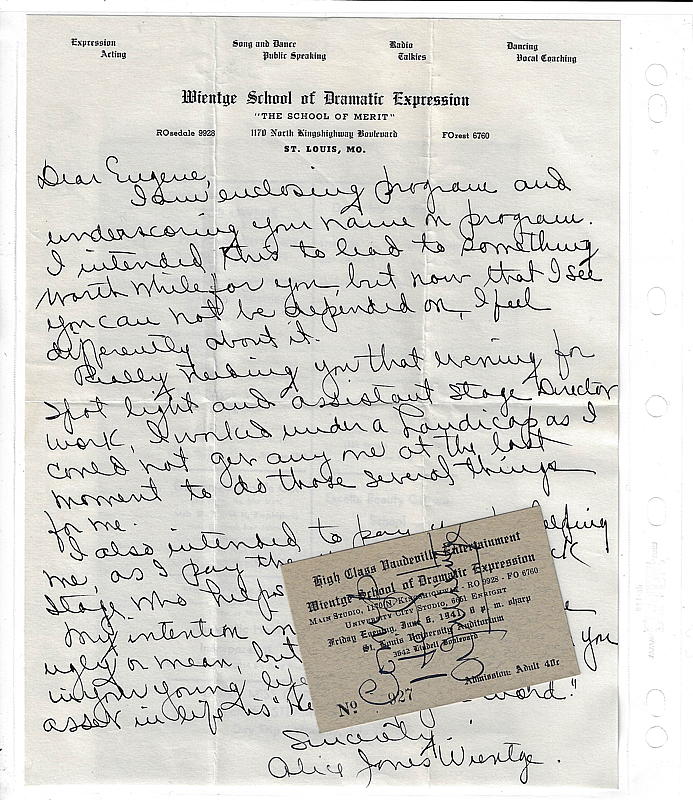 Expression Song and Dance Radio Dancing
Acting Public Speaking Talkies Vocal Coaching
Wientge School of Dramatic Expression
"THE SCHOOL OF MERIT"
ROsedale 9928 1170 North Kingshighway Boulevard FOrest 6760
ST. LOUIS, MO.
Dear Eugene,
I am enclosing program and
underscoring your name on program.
I intended this to lead to something
worth while for you, but now that I see
you can not be depended on, I feel
differently about it.
Really needing you that evening for
spot light and assistant Stage Director
work, I worked under a handicap as I
could not get any one at the last
moment to do those several things
for me.
I also intended to pay helping
me, as I pay the
stage, who helped
My intention
ugly or mean, but
in your young life you
asset in life is word."
Sincerely,
Alice Jones Wientge.
High Class Vaudeville Entertainment
Wientge School of Dramatic Expression
MAIN STUDIO, 1170 N. KINGSHIGHWAY. RO 9928 - FO 6760
UNIVERSITY CITY STUDIO, 6651 ENRIGHT
Friday Evening, June 6, 1941, 8 p. m. sharp
St. Louis University Auditorium
3642 Lindell Boulevard
Admission: Adult 40c
No 927